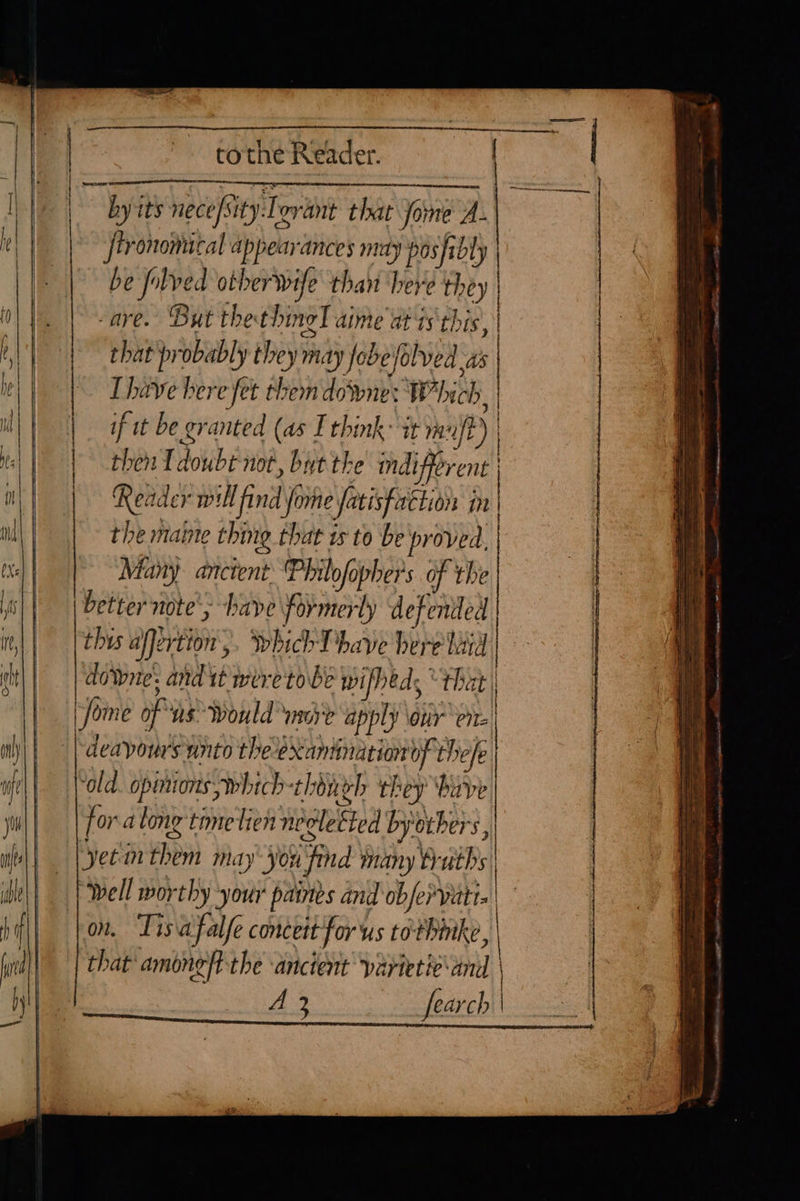 to the Reader.
by its necessity. I grant that some A-
stronomical appearances may possibly
be solved otherwise than here they
are. But the thing I aime at is this,
that probably they may so be solved as
I have here set them downe: Which,
if it be granted (as I think it must)
then I doubt not, but the indifferent
Reader will find some satisfaction in
the maine thing that is to be proved,
Many ancient Philosophers of the
better note, have formerly defended
this assertion, which I have here laid
downe, and it were to be wished, that
some of us would more apply our en-
deavours unto the examination of these
old opinions, which though they have
for a long time lien neglected by others,
yet in them may you find many truths
well worthy your paines and observati-
on. Tis a false conceit for us to thinke,
that amongst the ancient varietie and
A 3 search